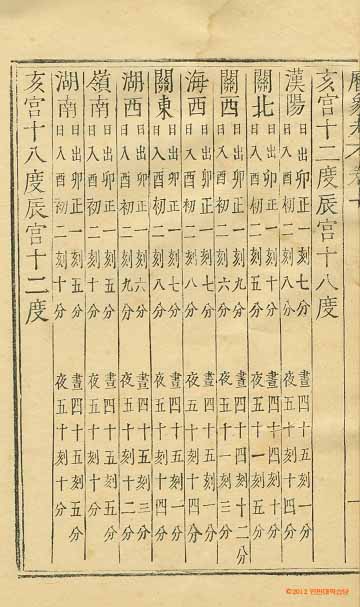 亥宮十二度辰宮十八度
漢陽
日出卯正一刻七分
日入酉初二刻八分
晝四十五刻一分
夜五十刻十四分
關北
日出卯正一刻十分
日入酉初二刻五分
晝四十四刻十分
夜五十一刻五分
關西
日出卯正一刻九分
日入酉初二刻六分
晝四十四刻十二分
夜五十一刻三分
海西
日出卯正一刻七分
日入酉初二刻八分
晝四十五刻一分
夜五十刻十四分
關東
日出卯正一刻七分
日入酉初二刻八分
晝四十五刻一分
夜五十刻十四分
湖西
日出卯正一刻六分
日入酉初二刻九分
晝四十五刻三分
夜五十刻十二分
嶺南
日出卯正一刻五分
日入酉初二刻十分
晝四十五刻五分
夜五十刻十分
湖南
日出卯正一刻五分
日入酉初二刻十分
晝四十五刻五分
夜五十刻十分
亥宮十八度辰宮十二度
©2012